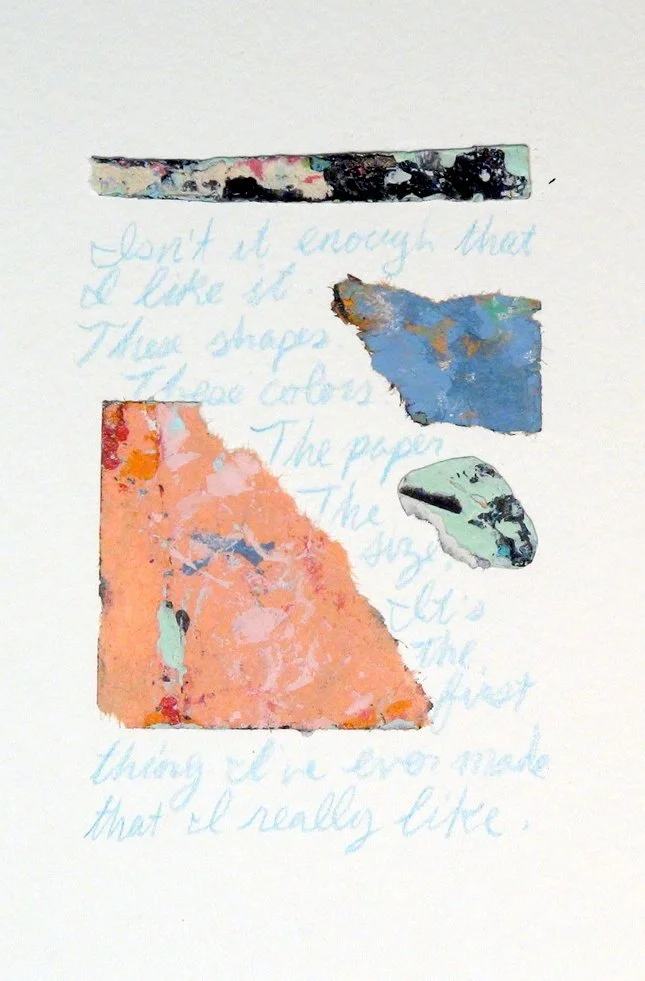 Isn't it enough that
I like it
These shapes
These colors
The paper
The
size.
It's
the
first
thing I've ever made
that I really like.